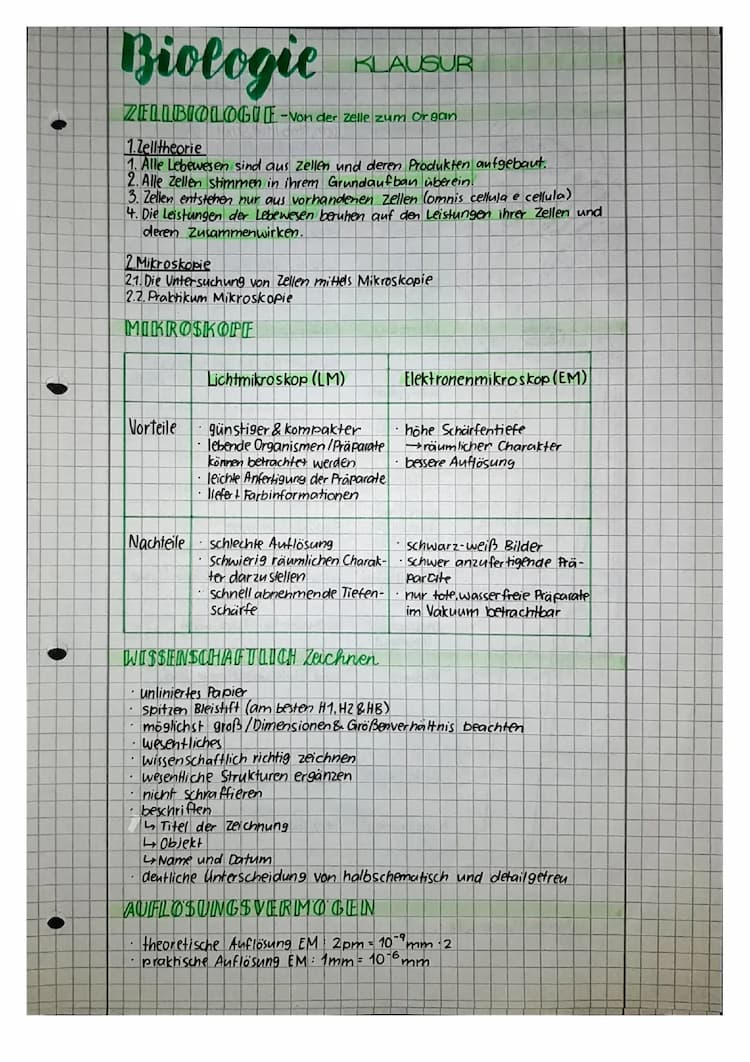 Biologie KLAUSUR
ZELLBIOLOGIE - Von der Zelle zum Organ
1. Zelltheorie
1. Alle Lebewesen sind aus Zellen und deren Produkten aufgebaut.
2. Alle Zellen stimmen in ihrem Grundaufbau überein.
3. Zellen entstehen nur aus vorhandenen Zellen (omnis cellula e cellula)
4. Die Leistungen der Lebewesen beruhen auf den Leistungen ihrer Zellen und
deren Zusammenwirken.
2. Mikroskopie
2.1. Die Untersuchung von Zellen mittels Mikroskopie
2.2. Praktikum Mikroskopie
MIKROSKOPE
Lichtmikroskop (LM)
Elektronenmikroskop (EM)
Vorteile
· günstiger & kompakter
· lebende Organismen / Präparate
können betrachtet werden
· leichte Anfertigung der Präparate
· liefert Farbinformationen
· hohe Schärfentiefe
→ räumlicher Charakter
· bessere Auflösung
Nachteile
· schlechte Auflösung
· schwierig räumlichen Charak-
ter darzustellen
· schnell abnehmende Tiefen-
schärfe
· schwarz-weiß Bilder
· schwer anzufertigende Prä-
parate
· nur tote, wasserfreie Präparate
im Vakuum betrachtbar
WISSENSCHAFTLICH Zeichnen
· unliniertes Papier
· spitzen Bleistift (am besten H1, H2 & HB)
· möglichst groß / Dimensionen & Größenverhältnis beachten
· wesentliches
· wissenschaftlich richtig zeichnen
· wesentliche Strukturen ergänzen
· nicht schraffieren
· beschriften
↳ Titel der Zeichnung
↳ Objekt
↳ Name und Datum
· deutliche Unterscheidung von halbschematisch und detailgetreu
AUFLÖSUNGSVERMÖGEN
· theoretische Auflösung EM : 2pm = 10⁻⁹ mm · 2
· praktische Auflösung EM : 1mm = 10⁻⁶ mm